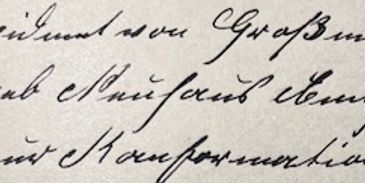 eidmet von Großm
eb Neuhaus
ur Konformatio